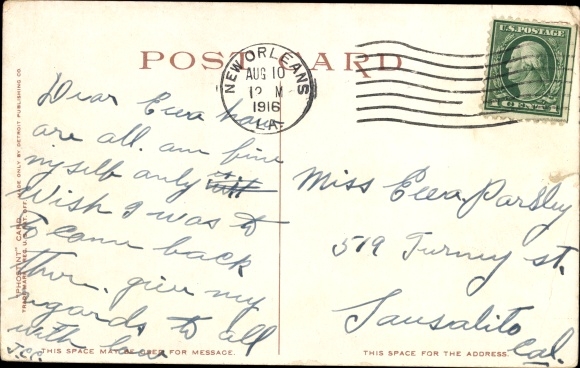 POST CARD
NEW ORLEANS
AUG 10
12 M
1916
LA.
U.S. POSTAGE
1 CENT 1
Dear Eera how
are all. am fine
myself only
Wish I was to
to come back
ther. give my
regards to all
with love
J.C.C.
Miss Eera Parsley
519 Turney st.
Sausalito
Cal.
"PHOSTINT" CARD MADE ONLY BY DETROIT PUBLISHING CO.
TRADEMARK REG. U.S. PAT. OFF.
THIS SPACE MAY BE USED FOR MESSAGE.
THIS SPACE FOR THE ADDRESS.